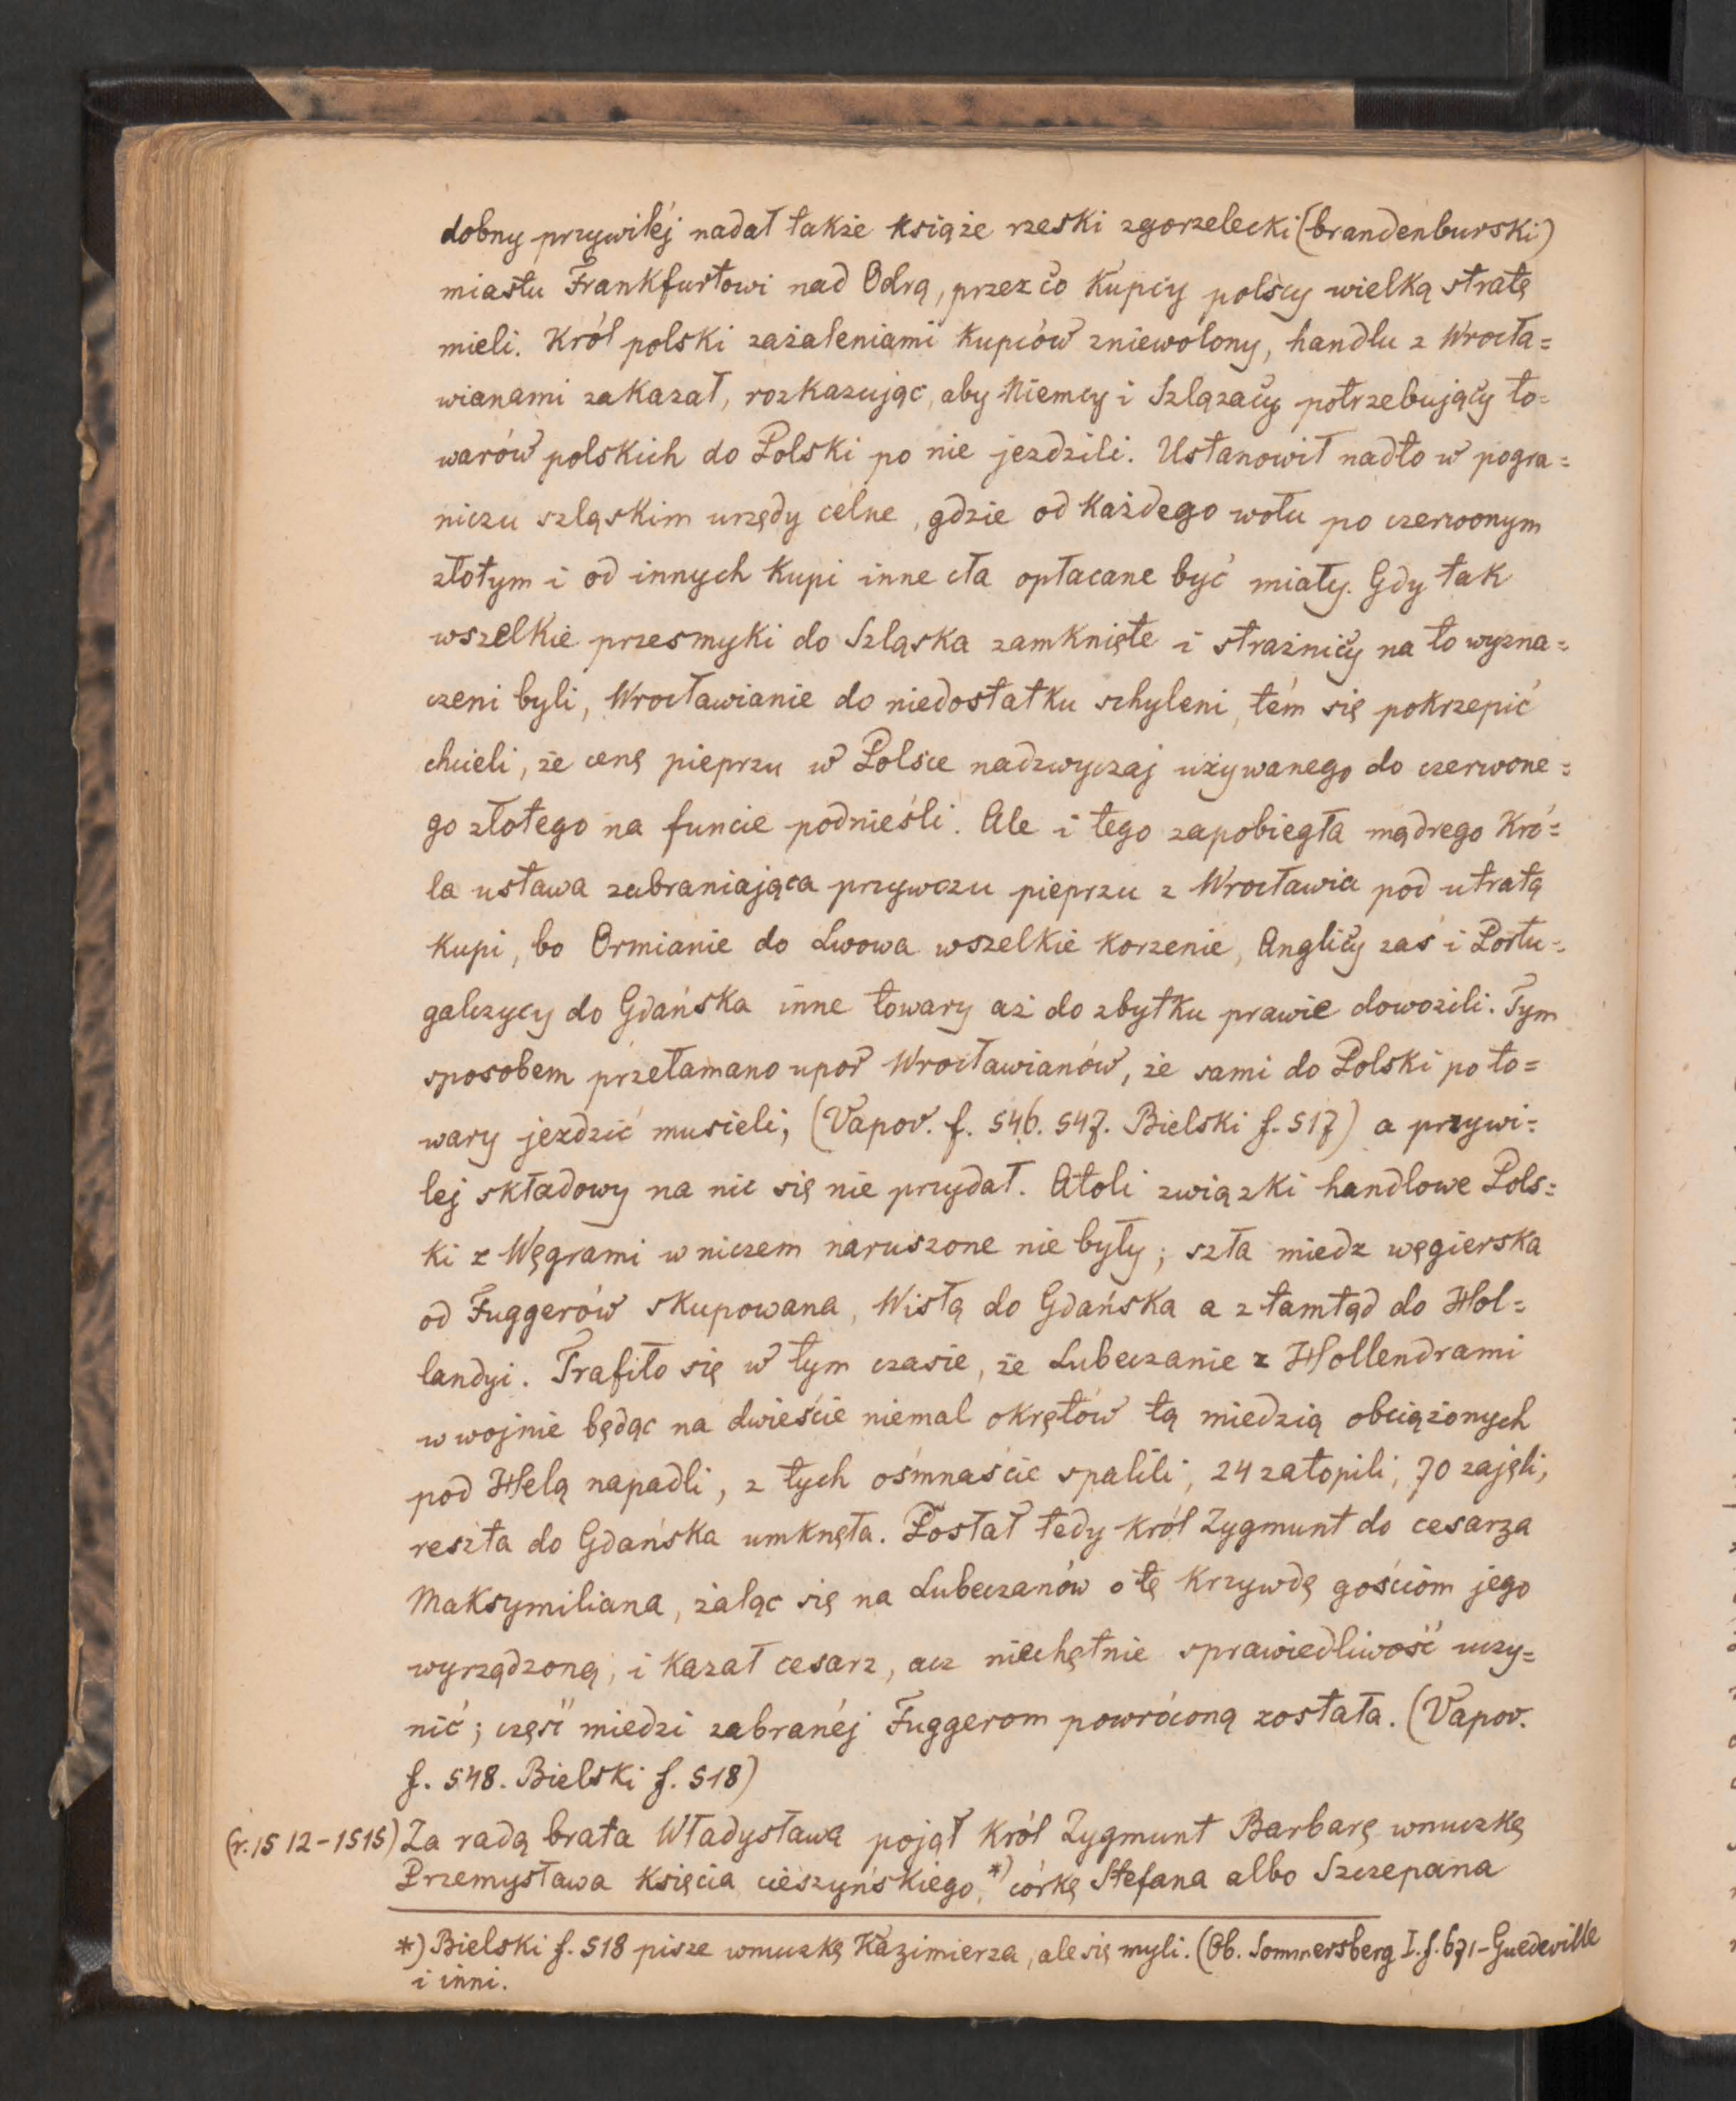 dobny przywiléj nadał także książe rzeski zgorzelecki (brandenburski)
miastu Frankfurtowi nad Odrą, przez co kupcy polscy wielką stratę
mieli. Król polski zażaleniami kupców zniewolony, handlu z Wrocła=
wianami zakazał, rozkazując, aby Niemcy i Szlązacy potrzebujący to=
warów polskich do Polski po nie jezdzili. Ustanowił nadto w pogra=
niczu szląskim urzędy celne, gdzie od każdego wołu po czerwonym
złotym i od innych kupi inne cła opłacane być miały. Gdy tak
wszelkie przesmyki do Szląska zamknięte i strażnicy na to wyzna=
czeni byli, Wrocławianie do niedostatku schyleni, tém się pokrzepić
chcieli, że cenę pieprzu w Polsce nadzwyczaj używanego do czerwone=
go złotego na funcie podnieśli. Ale i tego zapobiegła mądrego Kró=
la ustawa zabraniająca przywozu pieprzu z Wrocławia pod utratą
kupi, bo Ormianie do Lwowa wszelkie korzenie, Anglicy zaś i Portu=
galczycy do Gdańska inne towary aż do zbytku prawie dowozili. Tym
sposobem przełamano upor Wrocławianów, że sami do Polski po to=
wary jezdzić musieli, (Vapov. f. 546. 547. Bielski f. 517) a przywi=
lej składowy na nic się nie przydał. Atoli związki handlowe Pols=
ki z Węgrami w niczem naruszone nie były; szła miedz węgierska
od Fuggerów skupowana, Wisłą do Gdańska a z tamtąd do Hol=
landyi. Trafiło się w tym czasie, że Lubeczanie z Hollendrami
w wojnie będąc na dwieście niemal okrętów tą miedzią obciążonych
pod Helą napadli, z tych ośmnaście spalili, 24 zatopili, 70 zajęli,
reszta do Gdańska umknęła. Posłał tedy król Zygmunt do cesarza
Maksymiliana, żaląc się na Lubeczanów o tę krzywdę gościom jego
wyrządzoną, i kazał cesarz, acz niechętnie sprawiedliwość uczy=
nić; część miedzi zabranéj Fuggerom powróconą została. (Vapov.
f. 548. Bielski f. 518)
(r. 1512-1515) Za radą brata Władysława pojął król Zygmunt Barbarę wnuczkę
Przemysława księcia cieszyńskiego, *) córkę Stefana albo Szczepana
*) Bielski f. 518 pisze wnuczkę Kazimierza, ale się myli. (Ob. Sommersberg I. f. 671 - Guedeville
i inni.